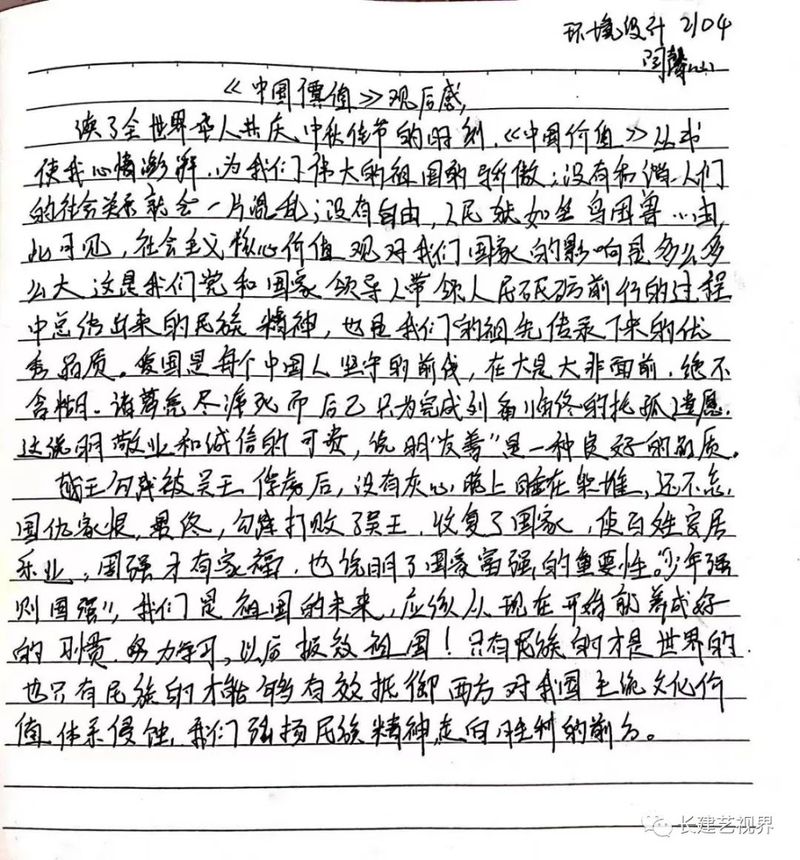 环境设计 2104
闫馨
《中国價值》观后感
读了全世界华人共庆、中秋佳节的时刻，《中国价值》丛书
使我心情澎湃，为我们伟大的祖国而骄傲；没有和谐人们
的社会关系就会一片混乱；没有自由，人民就如坐鸟困兽，由
此可见，社会主义核心价值观对我们国家的影响是多么多
么大 这是我们党和国家领导人带领人民砥砺前行的过程
中总结出来的民族精神，也是我们的祖先传录下来的优
秀品质。爱国是每个中国人坚守的前线，在大是大非面前，绝不
含糊。诸葛亮尽瘁死而后已只为完成刘备临终的托孤遗愿，
这说明敬业和诚信的可贵，说明“友善”是一种良好的品质。
越王勾践被吴王俘虏后，没有灰心，晚上睡在柴堆，还不忘，
国仇家恨，最终，勾践打败了吴王，收复了国家，使百姓安居
乐业，国强才有家福，也说明了国家富强的重要性。“少年强
则国强”，我们是祖国的未来，应该从现在开始就养成好
的习惯，努力学习，以后报效祖国！只有民族的才是世界的
也只有民族的才能够有效抵御西方对我国主流文化价
值体系侵蚀，我们强扬民族精神，走向胜利的前方。
长建艺视界